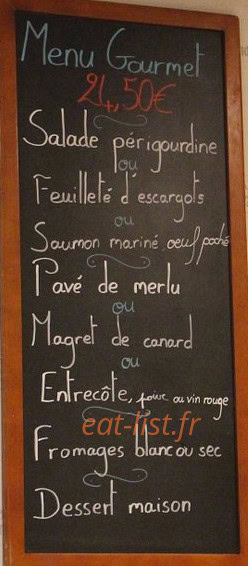 Menu Gourmet
24,50€
Salade périgourdine
ou
Feuilleté d'escargots
ou
Saumon mariné oeuf poché
Pavé de merlu
ou
Magret de canard
ou
Entrecôte, poivre ou vin rouge
eat-list.fr
Fromages blanc ou sec
Dessert maison